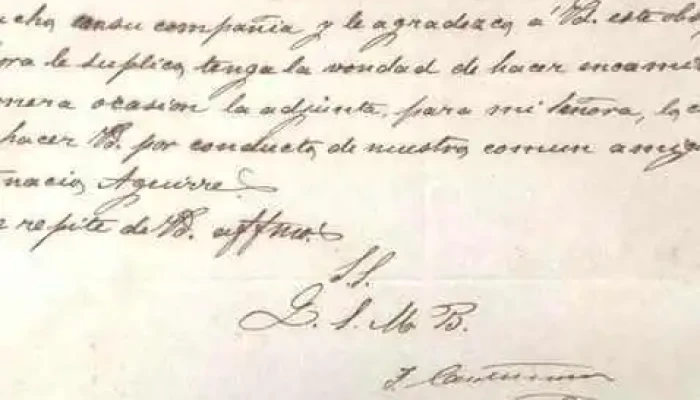 ucho en su compañia y le agradezco a Vd. este obs
ora le suplico tenga la vondad de hacer encami
mera ocasion la adjunta, para mi Señora, lo
hacer Vd. por conducto de nuestro comun amig
nacio Aguirre.
e repite de Vd. affmo.
S.S.
Q. S. M. B.